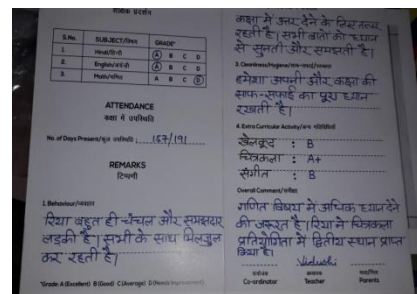 मासिक प्रदर्शन
S.No. SUBJECT/विषय GRADE*
1. Hindi/हिन्दी A B C D
2. English/अंग्रेजी A B C D
3. Math/गणित A B C D
ATTENDANCE
कक्षा में उपस्थिति
No. of Days Present/कुल उपस्थिति: 167/191
REMARKS
टिप्पणी
1. Behaviour/व्यवहार
रिया बहुत ही चंचल और समझदार
लड़की है। सभी के साथ मिलजुल
कर रहती है।
*Grade: A (Excellent) B (Good) C (Average) D (Needs Improvement)
कक्षा में उत्तर देने के लिए तत्पर
रहती है। सभी बातों को ध्यान
से सुनती और समझती है।
3. Cleanliness/Hygiene/साफ-सफाई/स्वच्छता
हमेशा अपनी और कक्षा की
साफ-सफाई का पूरा ध्यान
रखती है।
4. Extra Curricular Activity/अन्य गतिविधियाँ
खेलकूद : B
चित्रकला : A+
संगीत : B
Overall Comment/समीक्षा
गणित विषय में अधिक ध्यान देने
की जरूरत है। रिया ने चित्रकला
प्रतियोगिता में द्वितीय स्थान प्राप्त
किया है।
Vidushi
Co-ordinator Teacher Parents